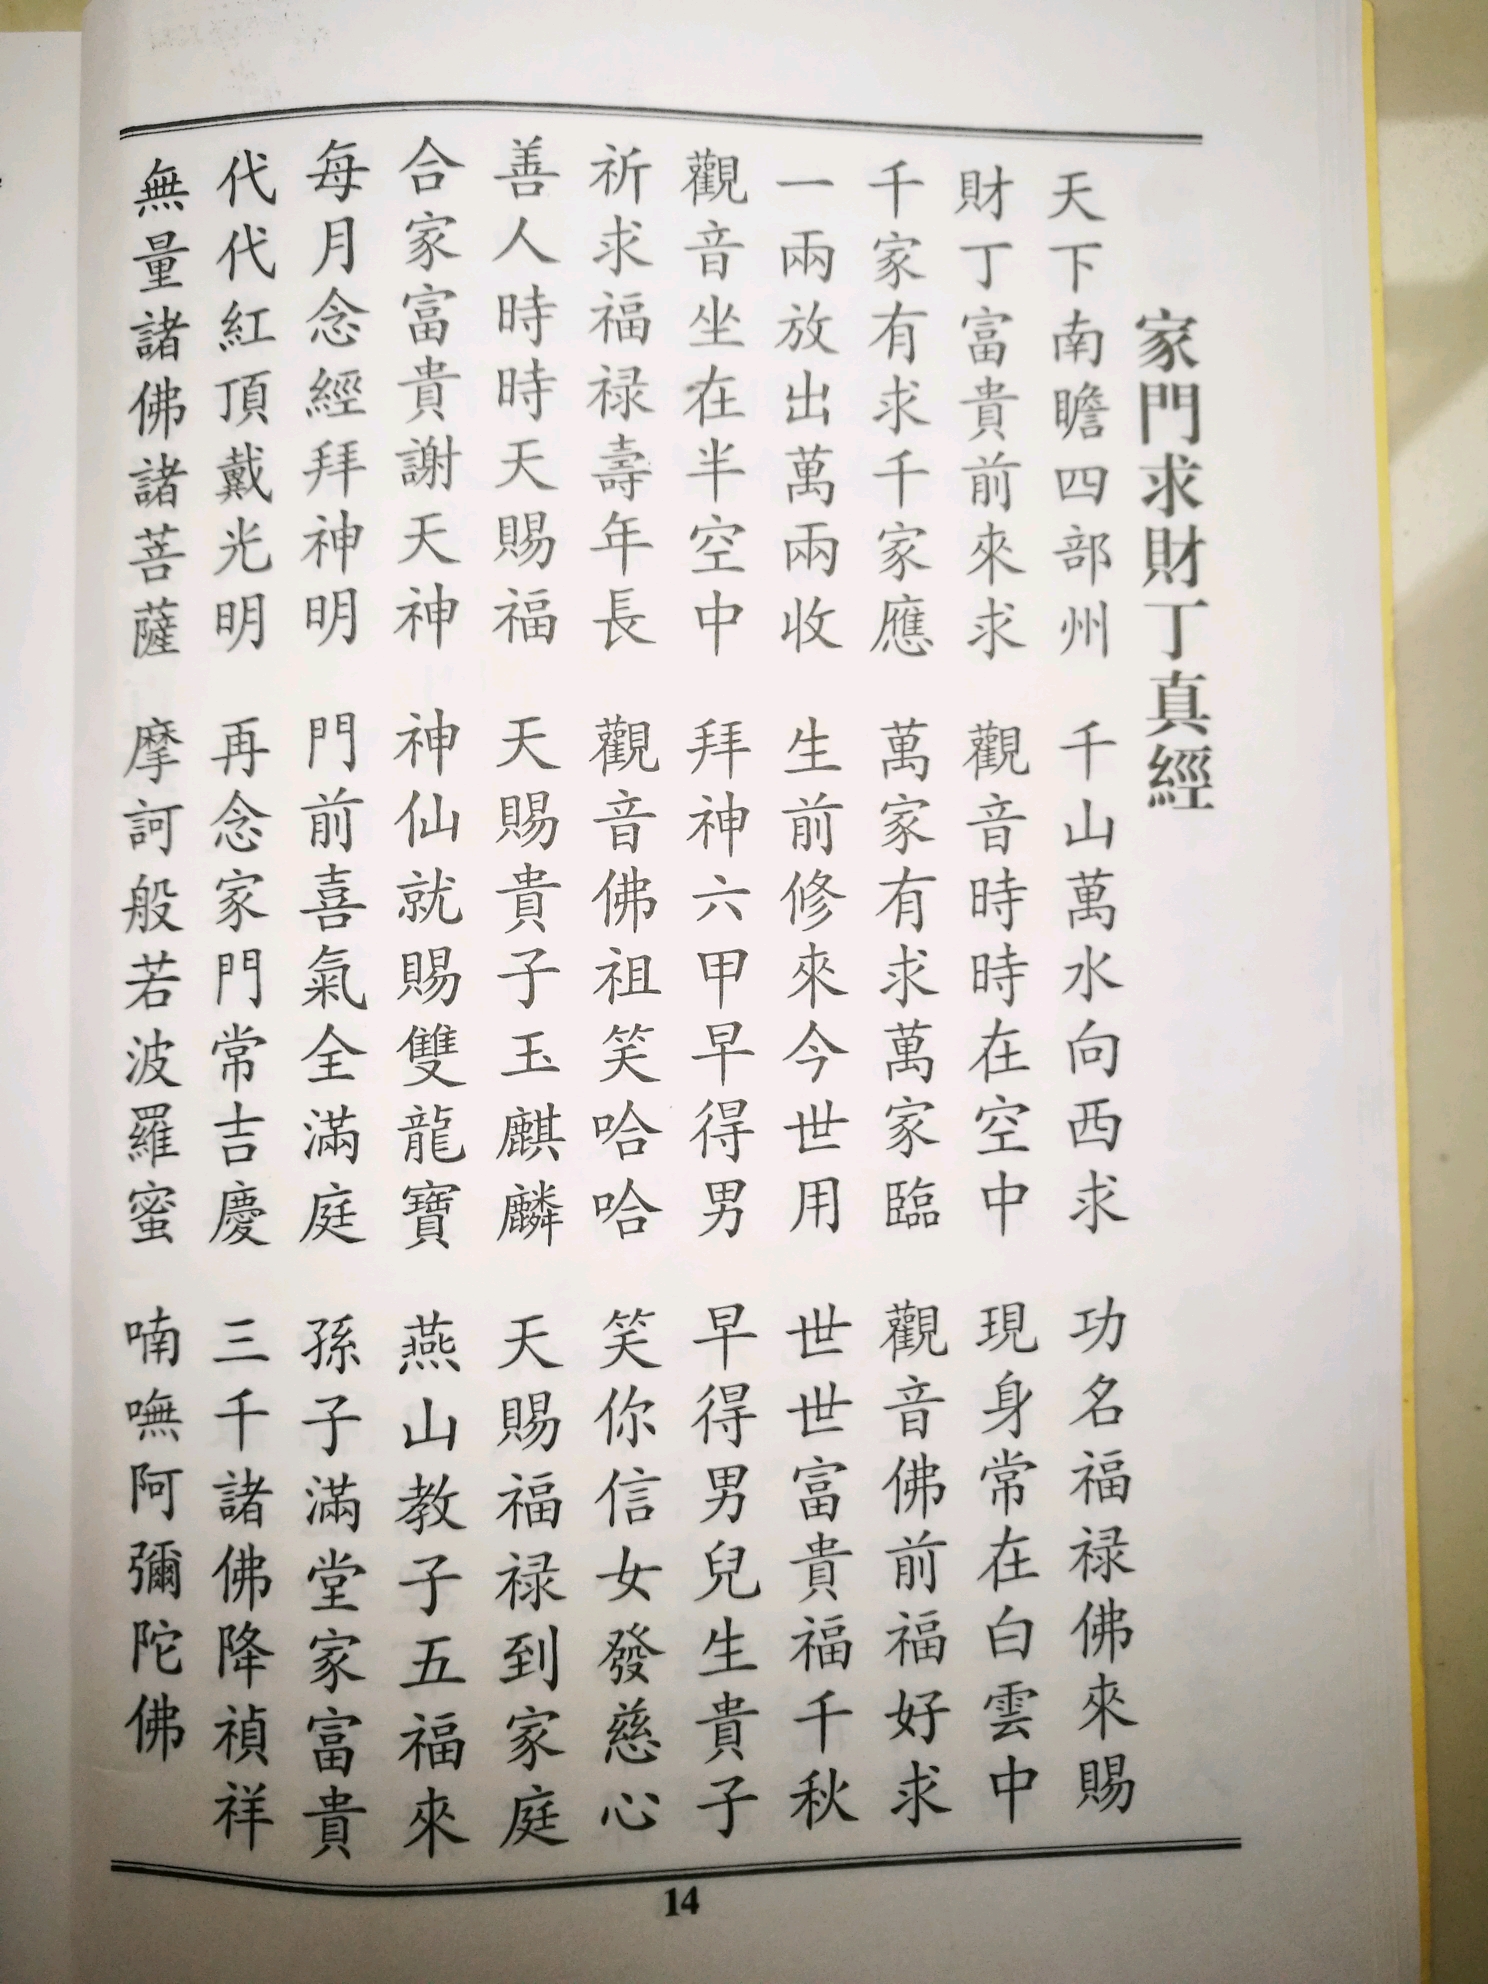 家門求財丁真經
天下南瞻四部州 千山萬水向西求 功名福禄佛來賜
財丁富貴前來求 觀音時時在空中 現身常在白雲中
千家有求千家應 萬家有求萬家臨 觀音佛前福好求
一兩放出萬兩收 生前修來今世用 世世富貴福千秋
觀音坐在半空中 拜神六甲早得男 早得男兒生貴子
祈求福禄壽年長 觀音佛祖笑哈哈 笑你信女發慈心
善人時時天賜福 天賜貴子玉麒麟 天賜福禄到家庭
合家富貴謝天神 神仙就賜雙龍寶 燕山教子五福來
每月念經拜神明 門前喜氣全滿庭 孫子滿堂家富貴
代代紅頂戴光明 再念家門常吉慶 三千諸佛降禎祥
無量諸佛諸菩薩 摩訶般若波羅蜜 喃嘸阿彌陀佛
14